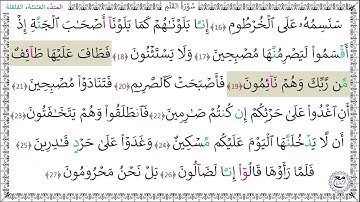 المدّ، الغنّة، القلقلة
سُورَةُ القَلَمِ
سَنَسِمُهُۥ عَلَى ٱلۡخُرۡطُومِ (16) إِنَّا بَلَوۡنَٰهُمۡ كَمَا بَلَوۡنَآ أَصۡحَٰبَ ٱلۡجَنَّةِ إِذۡ
أَقۡسَمُواْ لَيَصۡرِمُنَّهَا مُصۡبِحِينَ (17) وَلَا يَسۡتَثۡنُونَ (18) فَطَافَ عَلَيۡهَا طَآئِفٞ
مِّن رَّبِّكَ وَهُمۡ نَآئِمُونَ (19) فَأَصۡبَحَتۡ كَٱلصَّرِيمِ (20) فَتَنَادَوۡاْ مُصۡبِحِينَ (21)
أَنِ ٱغۡدُواْ عَلَىٰ حَرۡثِكُمۡ إِن كُنتُمۡ صَٰرِمِينَ (22) فَٱنطَلَقُواْ وَهُمۡ يَتَخَٰفَتُونَ (23)
أَن لَّا يَدۡخُلَنَّهَا ٱلۡيَوۡمَ عَلَيۡكُم مِّسۡكِينٞ (24) وَغَدَوۡاْ عَلَىٰ حَرۡدٖ قَٰدِرِينَ (25)
فَلَمَّا رَأَوۡهَا قَالُوٓاْ إِنَّا لَضَآلُّونَ (26) بَلۡ نَحۡنُ مَحۡرُومُونَ (27)